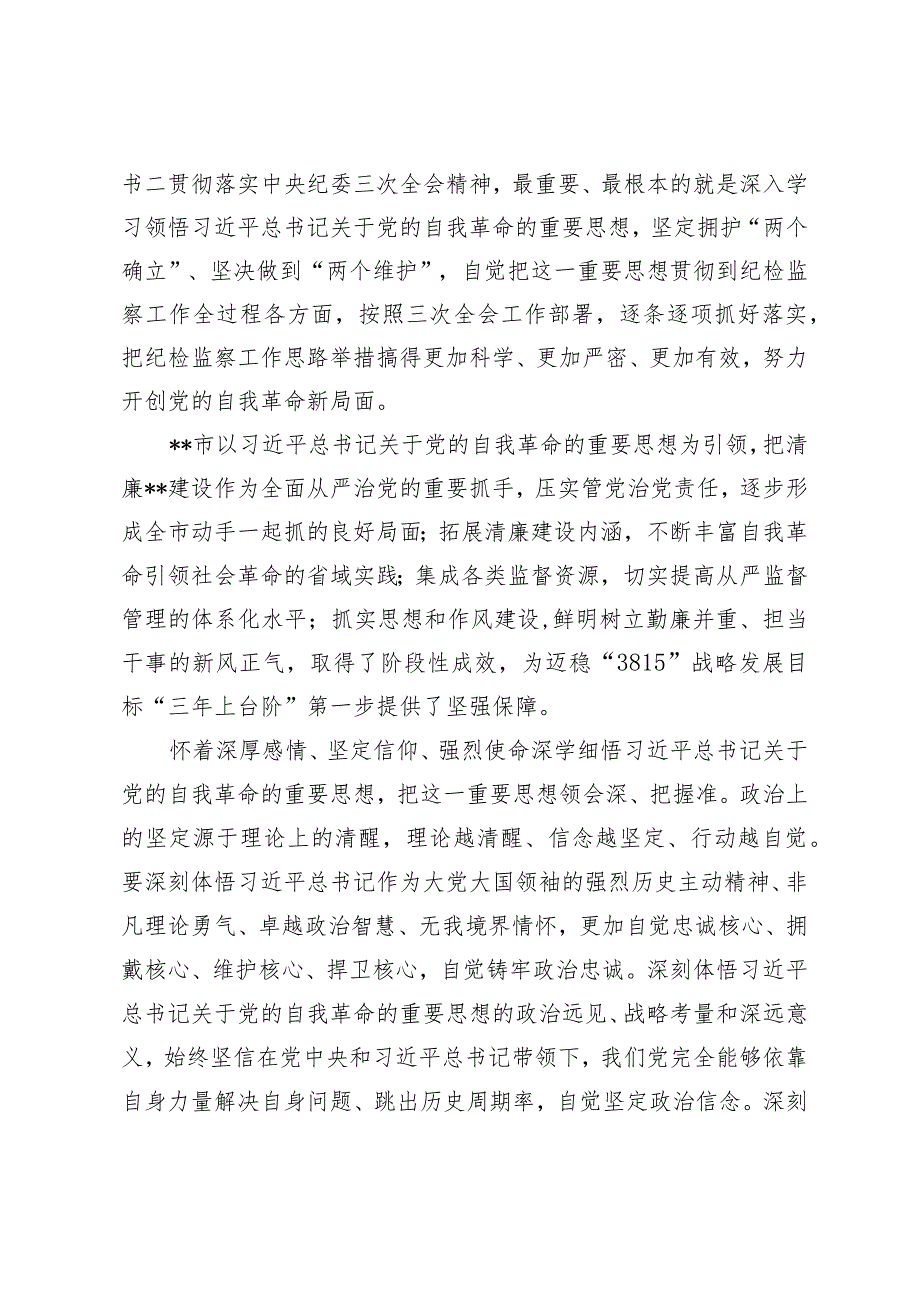 书二贯彻落实中央纪委三次全会精神，最重要、最根本的就是深入学
习领悟习近平总书记关于党的自我革命的重要思想，坚定拥护“两个
确立”、坚决做到“两个维护”，自觉把这一重要思想贯彻到纪检监
察工作全过程各方面，按照三次全会工作部署，逐条逐项抓好落实，
把纪检监察工作思路举措搞得更加科学、更加严密、更加有效，努力
开创党的自我革命新局面。
**市以习近平总书记关于党的自我革命的重要思想为引领，把清
廉**建设作为全面从严治党的重要抓手，压实管党治党责任，逐步形
成全市动手一起抓的良好局面；拓展清廉建设内涵，不断丰富自我革
命引领社会革命的省域实践；集成各类监督资源，切实提高从严监督
管理的体系化水平；抓实思想和作风建设,鲜明树立勤廉并重、担当
干事的新风正气，取得了阶段性成效，为迈稳“3815”战略发展目
标“三年上台阶”第一步提供了坚强保障。
怀着深厚感情、坚定信仰、强烈使命深学细悟习近平总书记关于
党的自我革命的重要思想，把这一重要思想领会深、把握准。政治上
的坚定源于理论上的清醒，理论越清醒、信念越坚定、行动越自觉。
要深刻体悟习近平总书记作为大党大国领袖的强烈历史主动精神、非
凡理论勇气、卓越政治智慧、无我境界情怀，更加自觉忠诚核心、拥
戴核心、维护核心、捍卫核心，自觉铸牢政治忠诚。深刻体悟习近平
总书记关于党的自我革命的重要思想的政治远见、战略考量和深远意
义，始终坚信在党中央和习近平总书记带领下，我们党完全能够依靠
自身力量解决自身问题、跳出历史周期率，自觉坚定政治信念。深刻